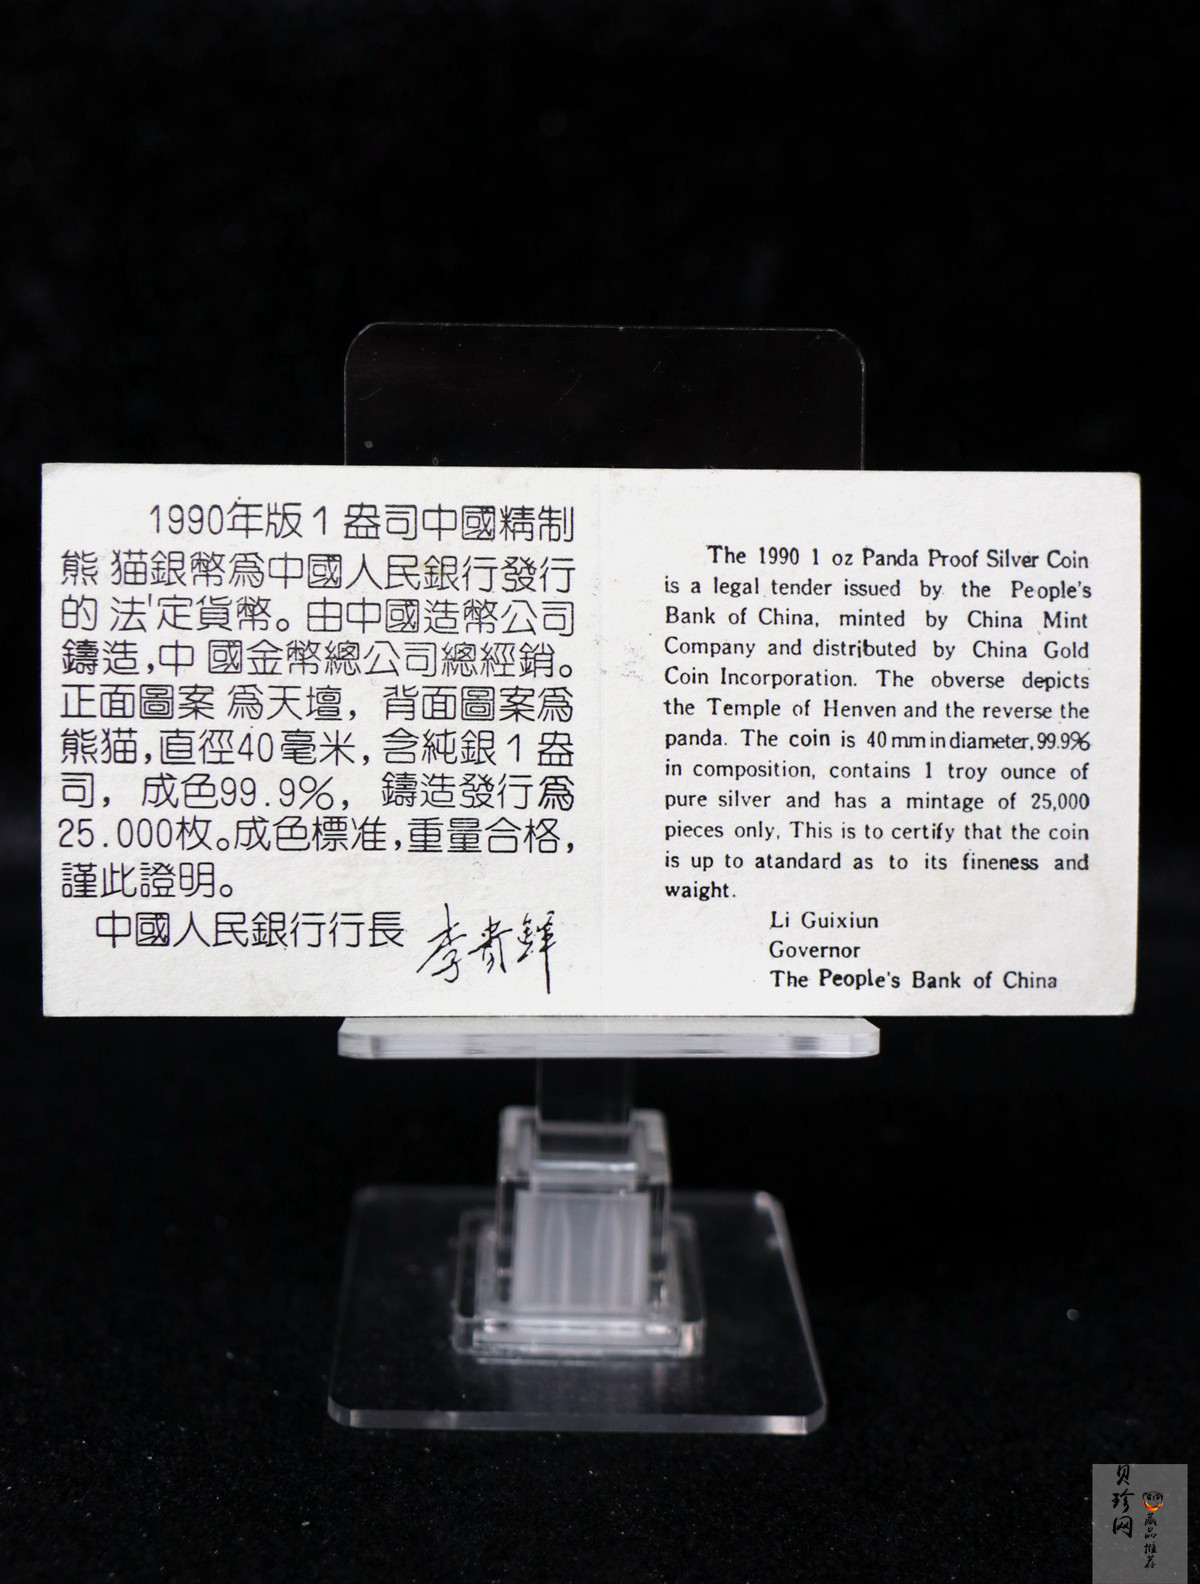 1990年版1盎司中國精制
熊猫銀幣爲中國人民銀行發行
的法定貨幣。由中國造幣公司
鑄造,中國金幣總公司總經銷。
正面圖案爲天壇，背面圖案爲
熊猫,直徑40毫米,含純銀1盎
司，成色99.9%，鑄造發行爲
25.000枚。成色標准,重量合格,
謹此證明。
中國人民銀行行長 李贵鲜
The 1990 1 oz Panda Proof Silver Coin
is a legal tender issued by the People's
Bank of China, minted by China Mint
Company and distributed by China Gold
Coin Incorporation. The obverse depicts
the Temple of Henven and the reverse the
panda. The coin is 40 mm in diameter, 99.9%
in composition, contains 1 troy ounce of
pure silver and has a mintage of 25,000
pieces only, This is to certify that the coin
is up to atandard as to its fineness and
waight.
Li Guixiun
Governor
The People's Bank of China
贝珍网
藏品推荐